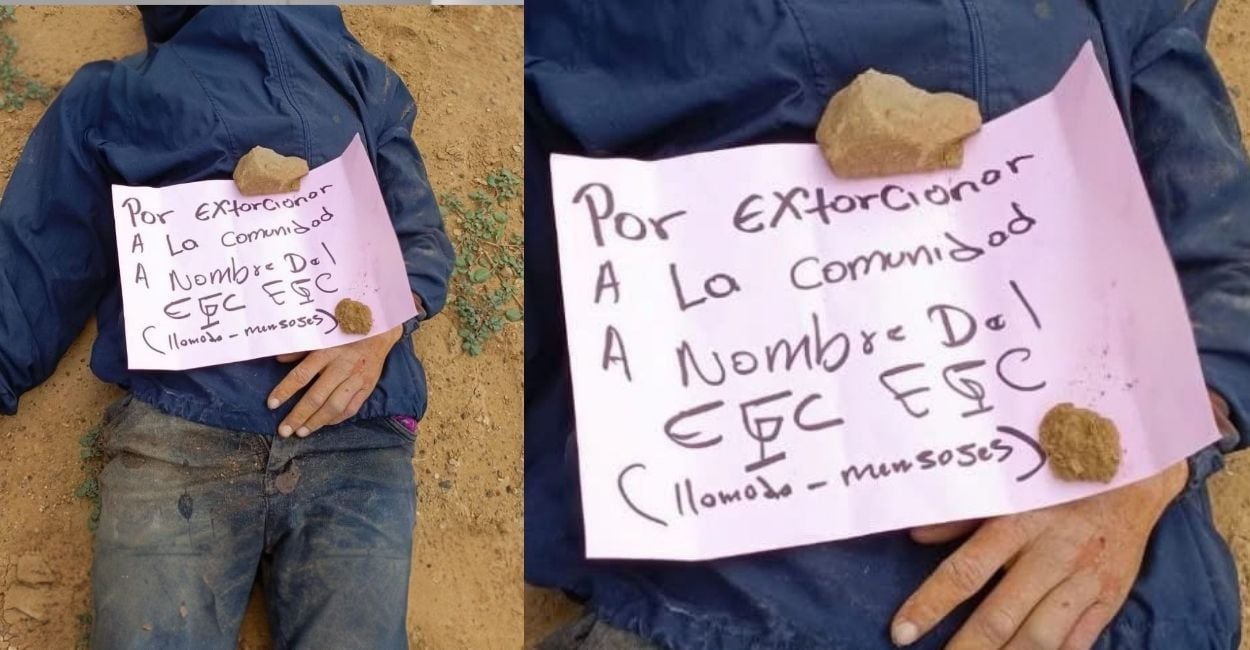 Por Extorcionar
A La Comunidad
A Nombre Del
EGC EGC
(llamada - mensages)
Por Extorcionar
A La Comunidad
A Nombre Del
EGC EGC
(llamada - mensages)